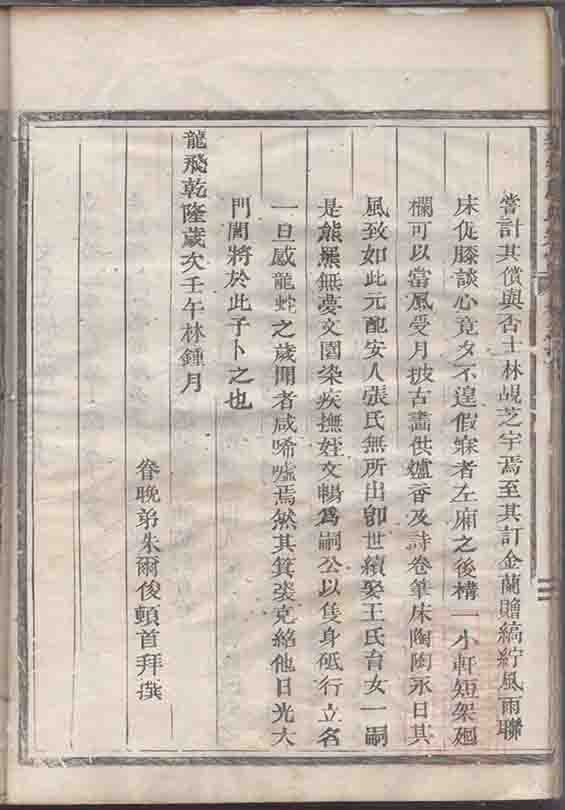 嘗計其償與否士林覘芝宇焉至其訂金蘭贈縞紵風雨聯
床促膝談心竟夕不遑假寐者左廂之後構一小軒短架廻
欄可以當風受月披古畵供爐香及詩卷筆床陶陶永日其
風致如此元配安人張氏無所出卽世續娶王氏育女一嗣
是熊羆無夢文園染疾撫姪文暢爲嗣公以隻身砥行立名
一旦感龍蛇之歲聞者咸唏噓焉然其箕裘克紹他日光大
門閭將於此子卜之也
龍飛乾隆歲次壬午林鍾月
眷晚弟朱爾俊頓首拜撰